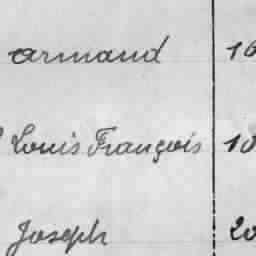 armand 16
Louis François 10
Joseph 20